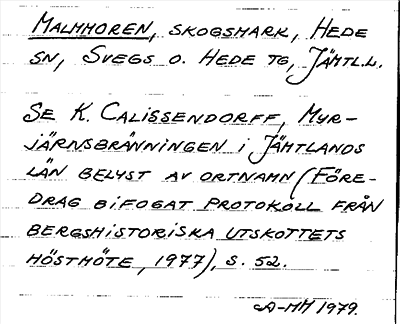 MALMMOREN, SKOGSMARK, HEDE
SN, SVEGS O. HEDE TG, JÄMTL.L.
SE K. CALISSENDORFF, MYR-
JÄRNSBRÄNNINGEN I JÄMTLANDS
LÄN BELYST AV ORTNAMN (FÖRE-
DRAG BIFOGAT PROTOKOLL FRÅN
BERGSHISTORISKA UTSKOTTETS
HÖSTMÖTE, 1977), S. 52.
A-MH 1979.